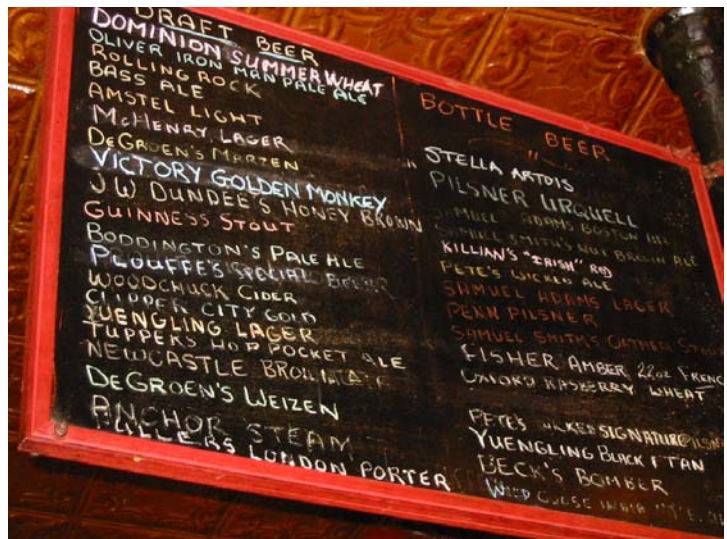 DRAFT BEER
DOMINION SUMMER WHEAT
OLIVER IRON MAN PALE ALE
ROLLING ROCK
BASS ALE
AMSTEL LIGHT
McHENRY LAGER
DeGROEN'S MARZEN
VICTORY GOLDEN MONKEY
JW DUNDEE'S HONEY BROWN
GUINNESS STOUT
BODDINGTON'S PALE ALE
PLOUFFE'S SPECIAL BEER
WOODCHUCK CIDER
CLIPPER CITY GOLD
YUENGLING LAGER
TUPPERS HOP POCKET ALE
NEWCASTLE BROWN ALE
DeGROEN'S WEIZEN
ANCHOR STEAM
FULLERS LONDON PORTER
BOTTLE BEER
STELLA ARTOIS
PILSNER URQUELL
SAMUEL ADAMS BOSTON
SAMUEL SMITH'S NUT BROWN ALE
KILLIAN'S "IRISH" RED
PETE'S WICKED ALE
SAMUEL ADAMS LAGER
PENN PILSNER
SAMUEL SMITH'S OATMEAL STOUT
FISHER AMBER 22oz FRENC
OXFORD RASBERRY WHEAT
PETE'S WICKED SIGNATURE PILSN
YUENGLING BLACK & TAN
BECK'S BOMBER
WILD GOOSE INDIA